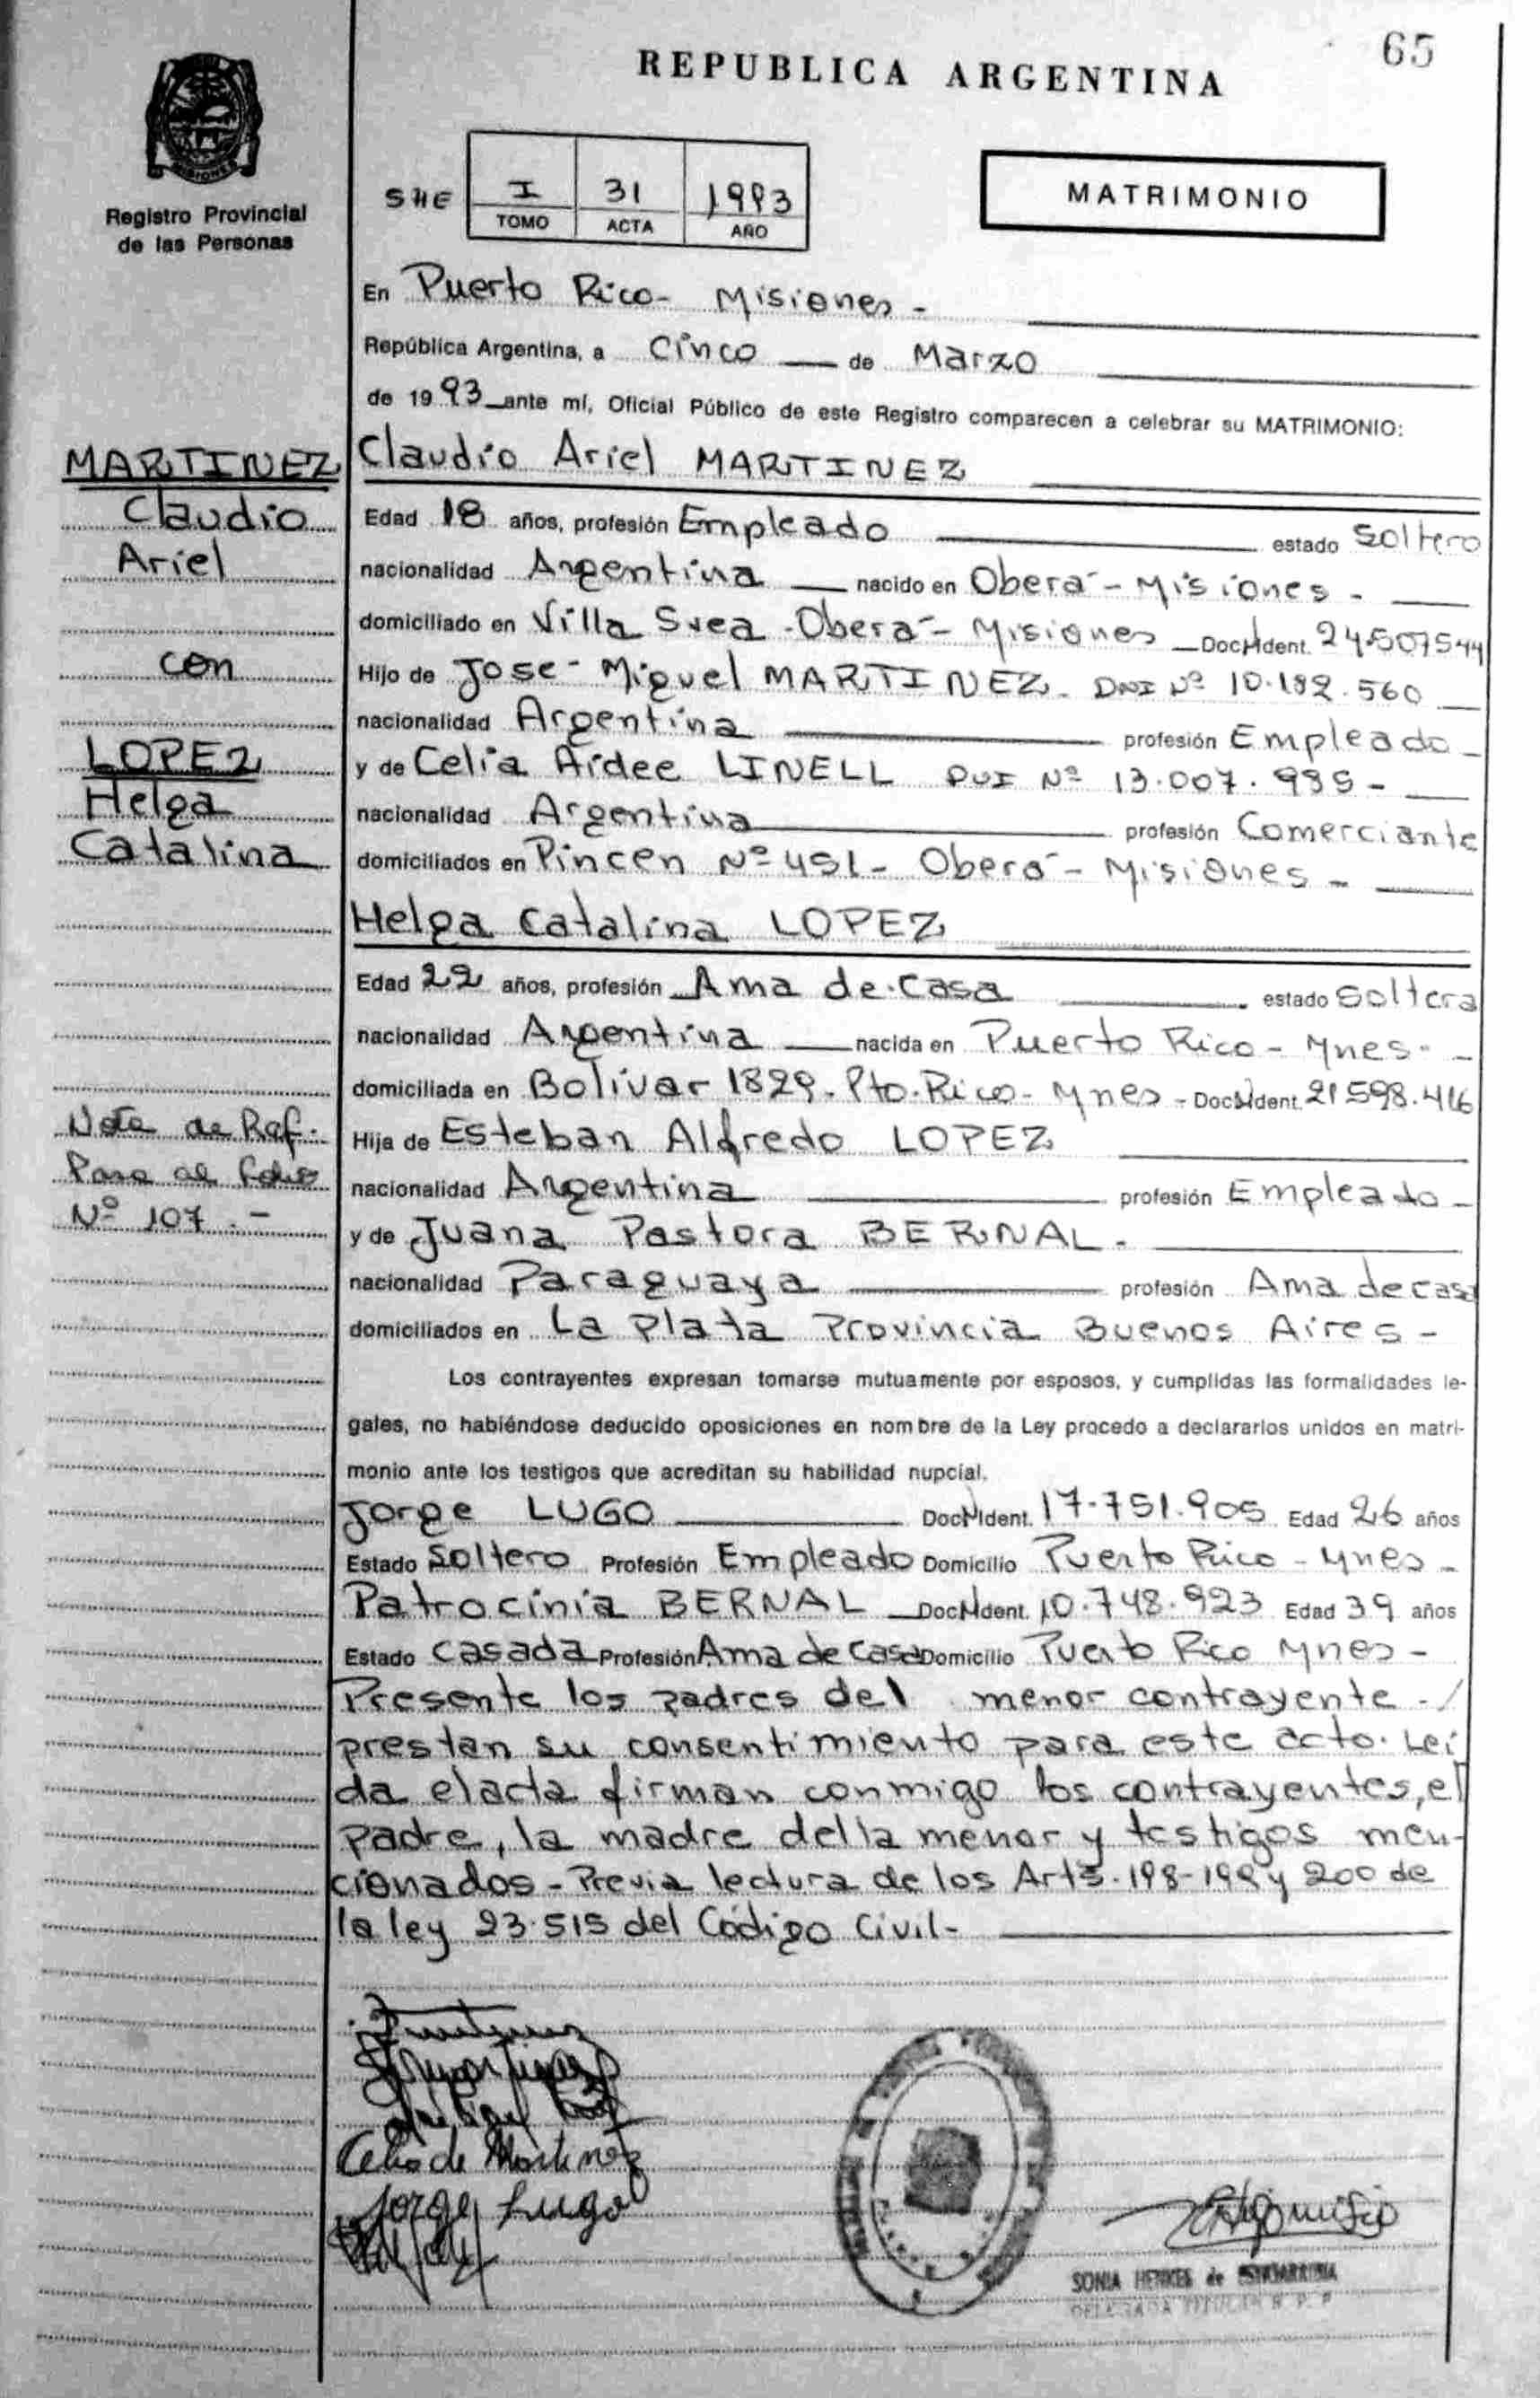 65
REPUBLICA ARGENTINA
MISIONES
Registro Provincial
de las Personas
I 31 1993
TOMO ACTA AÑO
MATRIMONIO
En Puerto Rico- Misiones -
República Argentina, a Cinco de Marzo
de 1993 ante mí, Oficial Público de este Registro comparecen a celebrar su MATRIMONIO:
MARTINEZ
Claudio
Ariel
con
LOPEZ
Helga
Catalina
Nota de Ref.
Pasa al Folio
Nº 107.-
Claudio Ariel MARTINEZ
Edad 18 años, profesión Empleado estado Soltero
nacionalidad Argentina nacido en Oberá - Misiones -
domiciliado en Villa Svea - Oberá - Misiones Doc. Ident. 24.507544
Hijo de Jose Miguel MARTINEZ - DNI Nº 10.192.560
nacionalidad Argentina profesión Empleado -
y de Celia Aidee LINELL DNI Nº 13.007.995 -
nacionalidad Argentina profesión Comerciante
domiciliados en Pincen Nº 451 - Oberá - Misiones -
Helga Catalina LOPEZ
Edad 22 años, profesión Ama de Casa estado Soltera
nacionalidad Argentina nacida en Puerto Rico - Mnes - -
domiciliada en Bolivar 1829 - Pto. Rico - Mnes - Doc. Ident. 21.598.416
Hija de Esteban Alfredo LOPEZ
nacionalidad Argentina profesión Empleado -
y de Juana Pastora BERNAL -
nacionalidad Paraguaya profesión Ama de casa
domiciliados en La Plata Provincia Buenos Aires -
Los contrayentes expresan tomarse mutuamente por esposos, y cumplidas las formalidades le-
gales, no habiéndose deducido oposiciones en nombre de la Ley procedo a declararlos unidos en matri-
monio ante los testigos que acreditan su habilidad nupcial.
Jorge LUGO Doc. Ident. 17.751.905 Edad 26 años
Estado Soltero Profesión Empleado Domicilio Puerto Rico - Mnes -
Patrocinia BERNAL Doc. Ident. 10.748.923 Edad 39 años
Estado Casada Profesión Ama de Casa Domicilio Puerto Rico Mnes -
Presente los padres del menor contrayente - /
prestan su consentimiento para este acto. Lei
da el acta firman conmigo los contrayentes, el
padre, la madre della menor y testigos men-
cionados - Previa lectura de los Arts. 198-199 y 200 de
la ley 23.515 del Código Civil -
Celia de Martinez
Jorge Lugo
SONIA HENKES de
DELEGADA TITULAR R. P. P.